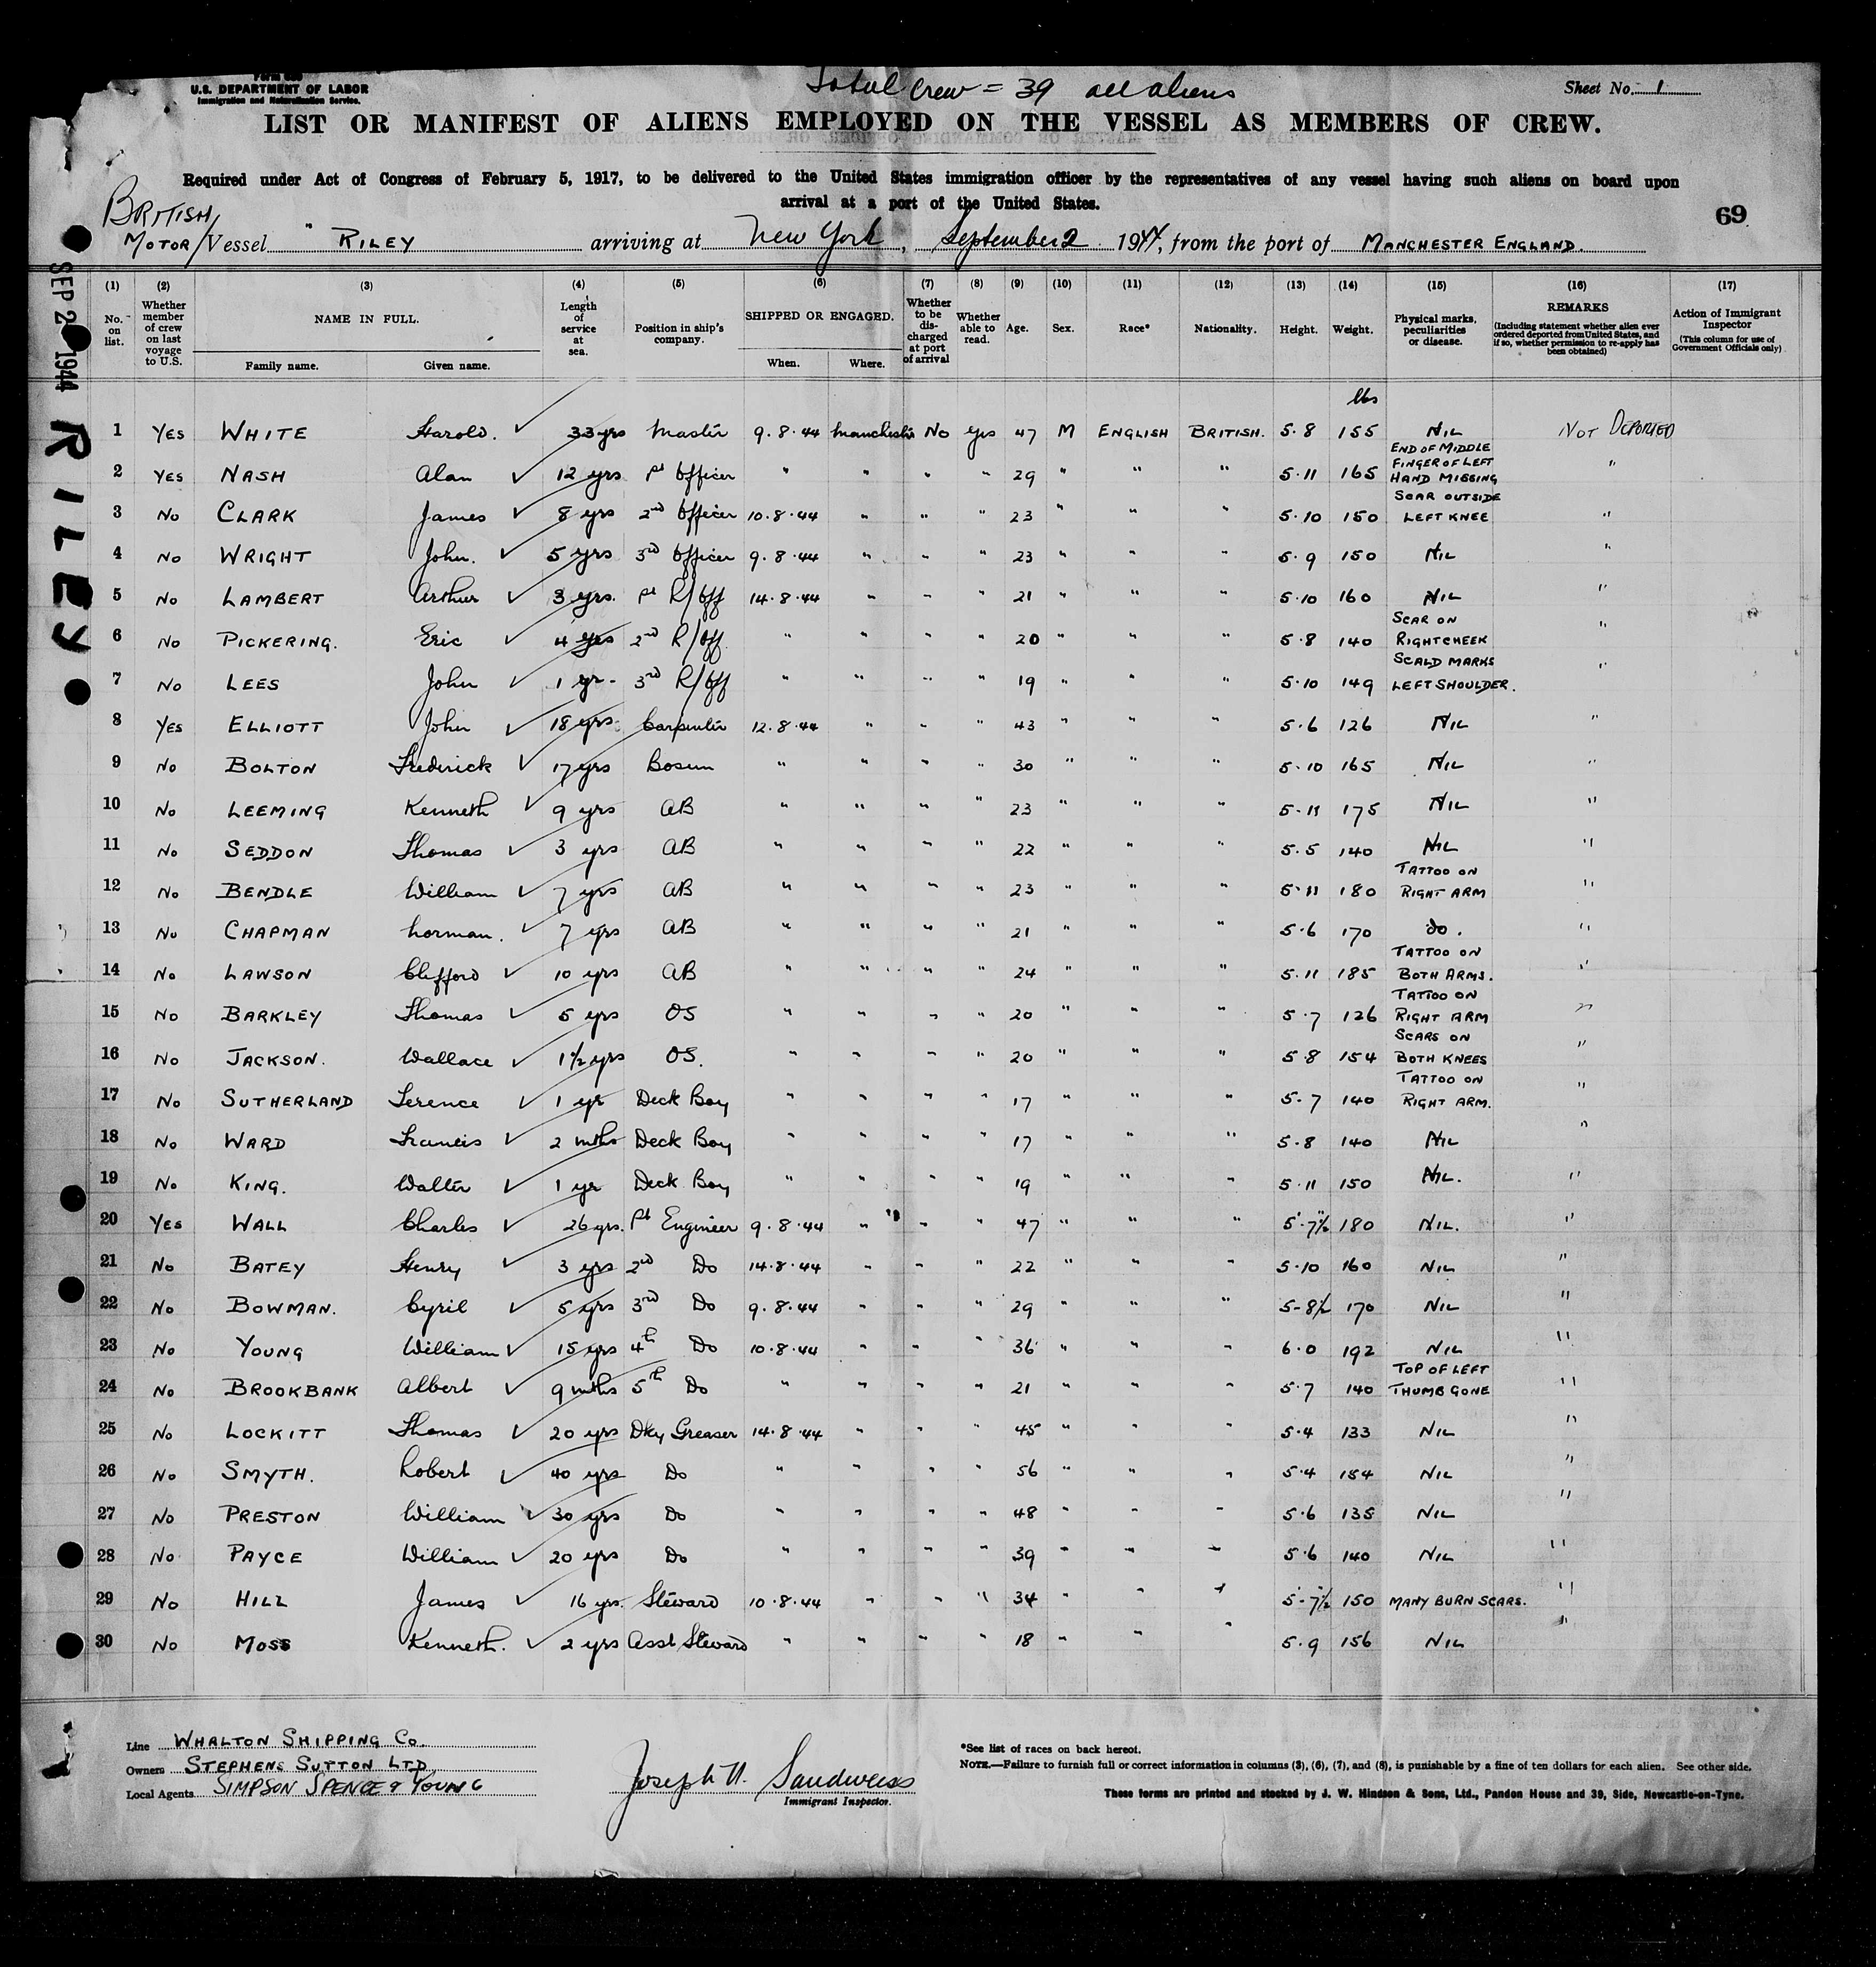 Form 689
U.S. DEPARTMENT OF LABOR
Immigration and Naturalization Service.
Total Crew = 39 all aliens
Sheet No. 1
LIST OR MANIFEST OF ALIENS EMPLOYED ON THE VESSEL AS MEMBERS OF CREW.
Required under Act of Congress of February 5, 1917, to be delivered to the United States immigration officer by the representatives of any vessel having such aliens on board upon
arrival at a port of the United States.
69
BRITISH
MOTOR/Vessel " RILEY arriving at New York, September 2 1944, from the port of MANCHESTER ENGLAND.
SEP 2 1944 RILEY
(1) (2) (3) (4) (5) (6) (7) (8) (9) (10) (11) (12) (13) (14) (15) (16) (17)
No. on list. Whether member of crew on last voyage to U.S. NAME IN FULL. Family name. Given name. Length of service at sea. Position in ship's company. SHIPPED OR ENGAGED. When. Where. Whether to be discharged at port of arrival Whether able to read. Age. Sex. Race* Nationality. Height. Weight. Physical marks, peculiarities or disease. REMARKS (Including statement whether alien ever ordered deported from United States, and if so, whether permission to re-apply has been obtained) Action of Immigrant Inspector (This column for use of Government Officials only)
lbs
1 YES WHITE Harold. ✓ 33 yrs Master 9.8.44 Manchester No yes 47 M ENGLISH BRITISH. 5.8 155 NIL NOT DEPORTED
2 YES NASH Alan ✓ 12 yrs 1st Officer " " " " 29 " " " 5.11 165 END OF MIDDLE FINGER OF LEFT HAND MISSING "
3 No CLARK James ✓ 8 yrs 2nd Officer 10.8.44 " " " 23 " " " 5.10 150 SCAR OUTSIDE LEFT KNEE "
4 No WRIGHT John. ✓ 5 yrs 3rd Officer 9.8.44 " " " 23 " " " 5.9 150 NIL "
5 No LAMBERT Arthur ✓ 3 yrs. 1st R/Off 14.8.44 " " " 21 " " " 5.10 160 NIL "
6 No PICKERING. Eric ✓ 4 yrs 2nd R/Off. " " " " 20 " " " 5.8 140 SCAR ON RIGHT CHEEK "
7 No LEES John ✓ 1 yr. 3rd R/Off " " " " 19 " " " 5.10 149 SCALD MARKS LEFT SHOULDER. "
8 YES ELLIOTT John ✓ 18 yrs. Carpenter 12.8.44 " " " 43 " " " 5.6 126 NIL "
9 No BOLTON Frederick ✓ 17 yrs Bosun " " " " 30 " " " 5.10 165 NIL "
10 No LEEMING Kenneth ✓ 9 yrs AB " " " " 23 " " " 5.11 175 NIL "
11 No SEDDON Thomas ✓ 3 yrs AB " " " " 22 " " " 5.5 140 NIL "
12 No BENDLE William ✓ 7 yrs AB " " " " 23 " " " 5.11 180 TATTOO ON RIGHT ARM "
13 No CHAPMAN Norman. ✓ 7 yrs AB " " " " 21 " " " 5.6 170 do. "
14 No LAWSON Clifford ✓ 10 yrs AB " " " " 24 " " " 5.11 185 TATTOO ON BOTH ARMS. "
15 No BARKLEY Thomas ✓ 5 yrs OS " " " " 20 " " " 5.7 126 TATTOO ON RIGHT ARM "
16 No JACKSON. Wallace ✓ 1½ yrs OS. " " " " 20 " " " 5.8 154 SCARS ON BOTH KNEES "
17 No SUTHERLAND Terence ✓ 1 yr Deck Boy " " " " 17 " " " 5.7 140 TATTOO ON RIGHT ARM. "
18 No WARD Francis ✓ 2 mths Deck Boy " " " " 17 " " " 5.8 140 NIL "
19 No KING. Walter ✓ 1 yr Deck Boy " " " " 19 " " " 5.11 150 NIL. "
20 YES WALL Charles ✓ 26 yrs. 1st Engineer 9.8.44 " " " 47 " " " 5'.7½" 180 NIL. "
21 No BATEY Henry ✓ 3 yrs 2nd Do 14.8.44 " " " 22 " " " 5.10 160 NIL "
22 No BOWMAN. Cyril ✓ 5 yrs 3rd Do 9.8.44 " " " 29 " " " 5-8½ 170 NIL "
23 No YOUNG William ✓ 15 yrs 4th Do 10.8.44 " " " 36 " " " 6.0 192 NIL "
24 No BROOKBANK Albert ✓ 9 mths 5th Do " " " " 21 " " " 5.7 140 TOP OF LEFT THUMB GONE "
25 No LOCKITT Thomas ✓ 20 yrs Dky Greaser 14.8.44 " " " 45 " " " 5.4 133 NIL "
26 No SMYTH. Robert ✓ 40 yrs Do " " " " 56 " " " 5.4 154 NIL "
27 No PRESTON William ✓ 30 yrs Do " " " " 48 " " " 5.6 135 NIL "
28 No PAYCE William ✓ 20 yrs Do " " " " 39 " " " 5.6 140 NIL "
29 No HILL James ✓ 16 yrs. Steward 10.8.44 " " " 34 " " " 5'-7½" 150 MANY BURN SCARS. "
30 No MOSS Kenneth. ✓ 2 yrs Asst Steward " " " " 18 " " " 5.9 156 NIL "
Line WHALTON SHIPPING Co.
Owners STEPHENS SUTTON LTD.
Local Agents SIMPSON SPENCE & YOUNG
Joseph H. Sandweiss
Immigrant Inspector.
*See list of races on back hereof.
NOTE.—Failure to furnish full or correct information in columns (3), (6), (7), and (8), is punishable by a fine of ten dollars for each alien. See other side.
These forms are printed and stocked by J. W. Hindson & Sons, Ltd., Pandon House and 39, Side, Newcastle-on-Tyne.